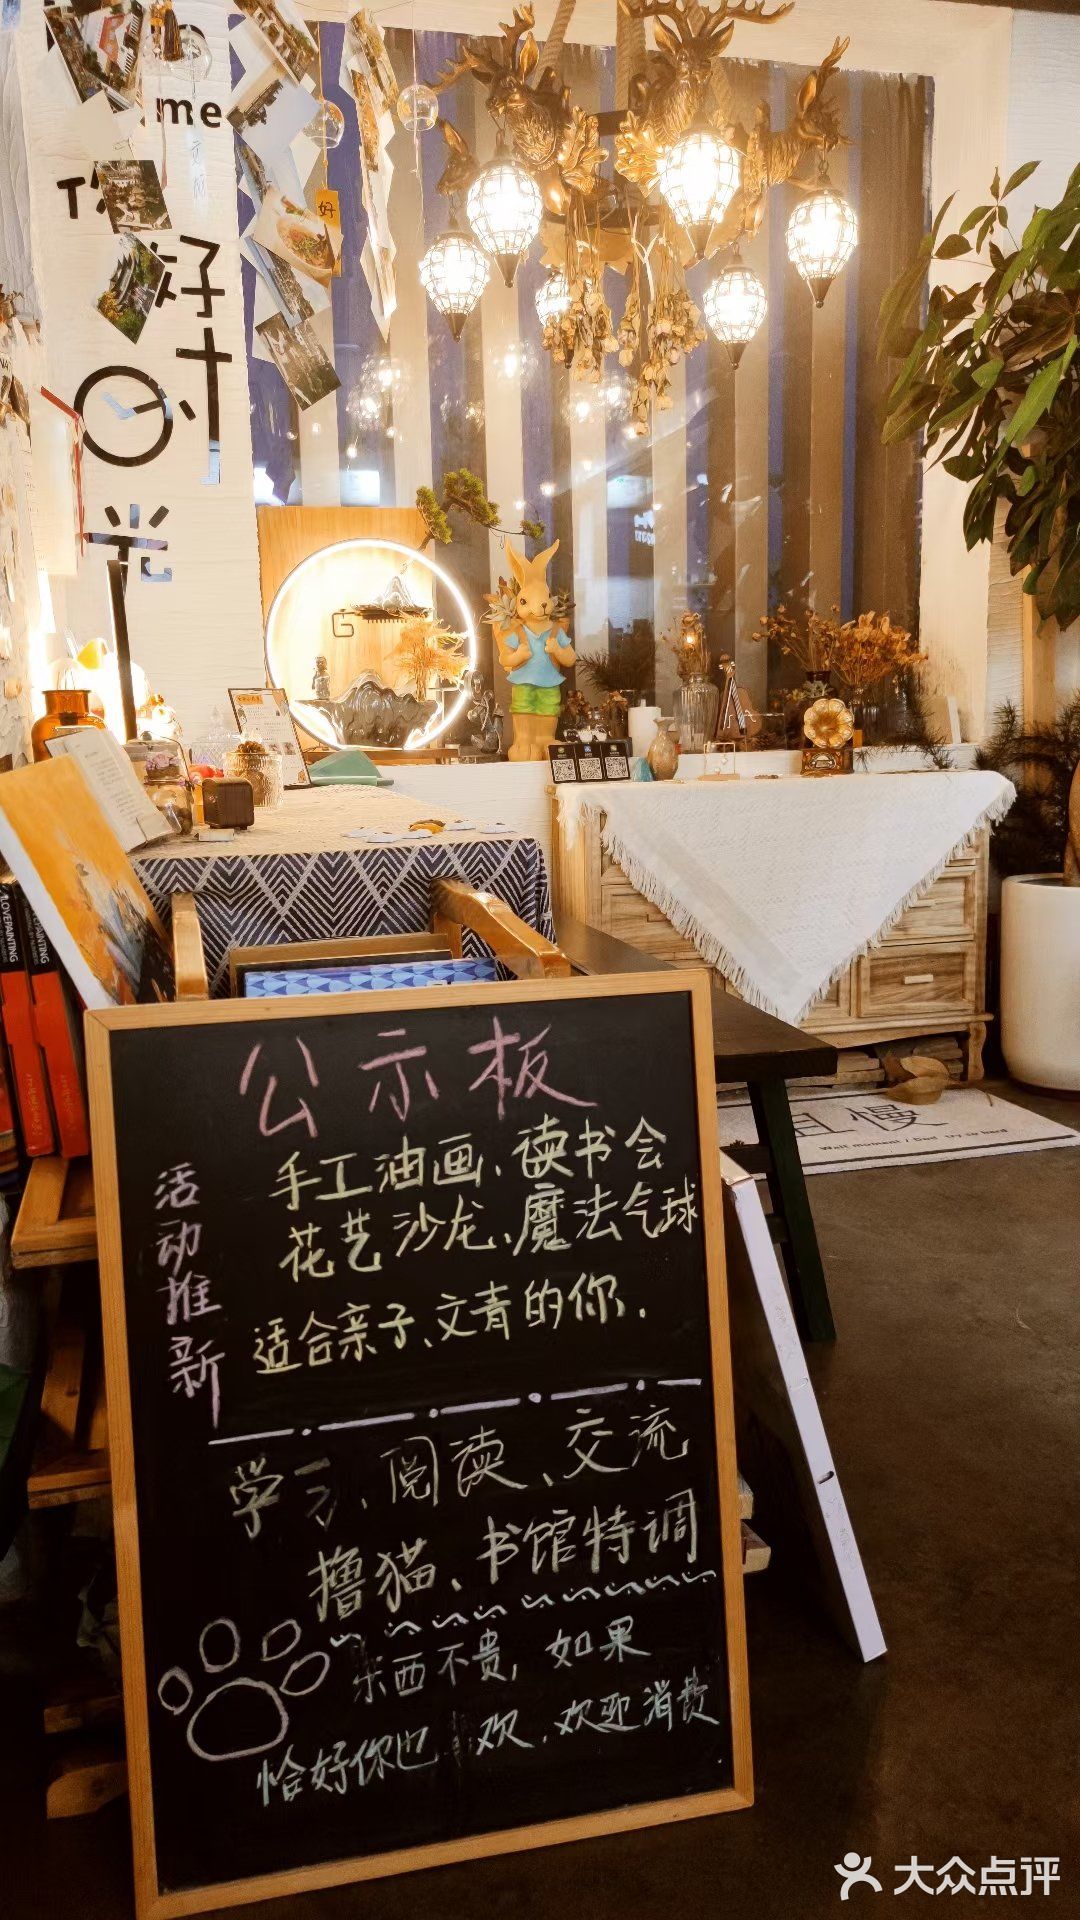 me
好
好
时
光
G
LOVEPAINTING
LOVEPAINTING
且慢
公示板
活动推新
手工油画、读书会
花艺沙龙、魔法气球
适合亲子、文青的你.
学习、阅读、交流
撸猫、书馆特调
东西不贵,如果
恰好你也 欢,欢迎消费
大众点评